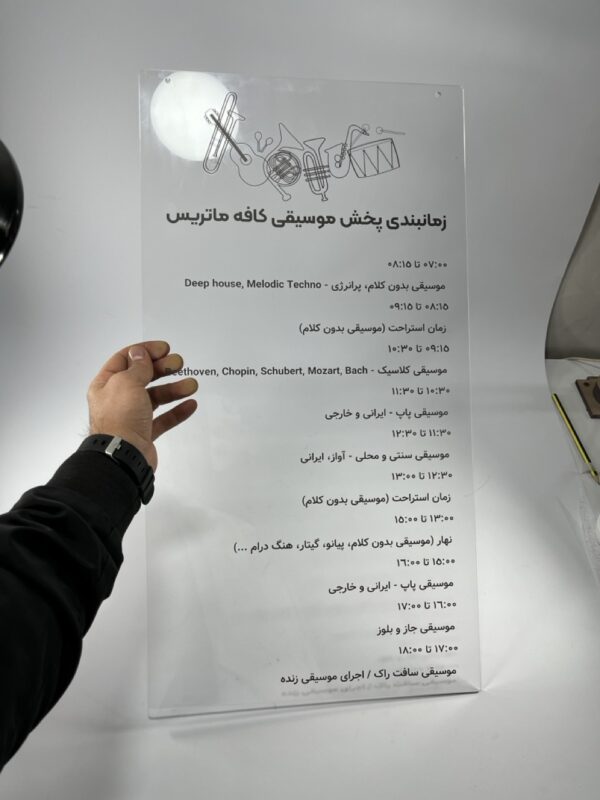 زمانبندی پخش موسیقی کافه ماتریس
۰۷:۰۰ تا ۰۸:۱۵
موسیقی بدون کلام، پرانرژی - Deep house, Melodic Techno
۰۸:۱۵ تا ۰۹:۱۵
زمان استراحت (موسیقی بدون کلام)
۰۹:۱۵ تا ۱۰:۳۰
موسیقی کلاسیک - Beethoven, Chopin, Schubert, Mozart, Bach
۱۰:۳۰ تا ۱۱:۳۰
موسیقی پاپ - ایرانی و خارجی
۱۱:۳۰ تا ۱۲:۳۰
موسیقی سنتی و محلی - آواز، ایرانی
۱۲:۳۰ تا ۱۳:۰۰
زمان استراحت (موسیقی بدون کلام)
۱۳:۰۰ تا ۱۵:۰۰
نهار (موسیقی بدون کلام، پیانو، گیتار، هنگ درام ...)
۱۵:۰۰ تا ۱۶:۰۰
موسیقی پاپ - ایرانی و خارجی
۱۶:۰۰ تا ۱۷:۰۰
موسیقی جاز و بلوز
۱۷:۰۰ تا ۱۸:۰۰
موسیقی سافت راک / اجرای موسیقی زنده